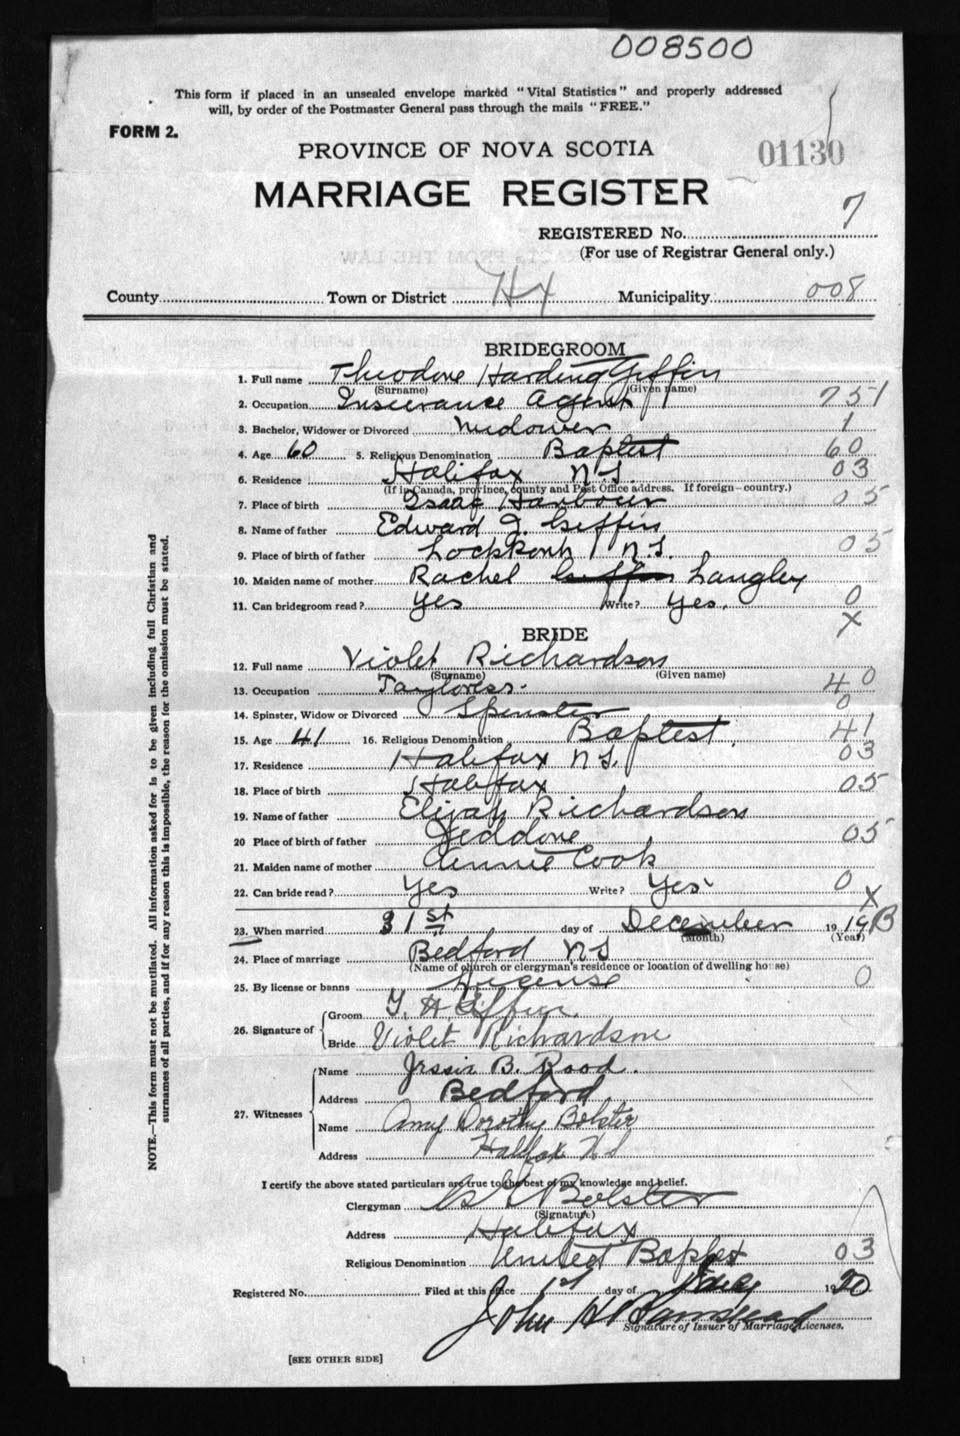 008500
This form if placed in an unsealed envelope marked "Vital Statistics" and properly addressed
will, by order of the Postmaster General pass through the mails "FREE."
FORM 2.
PROVINCE OF NOVA SCOTIA
01130
MARRIAGE REGISTER
REGISTERED No. 7
(For use of Registrar General only.)
County Town or District Hx Municipality 008
BRIDEGROOM
1. Full name Theodore Harding Giffin
(Surname) (Given name)
2. Occupation Insurance Agent 751
3. Bachelor, Widower or Divorced Widower 1
4. Age 60 5. Religious Denomination Baptist 60
6. Residence Halifax N.S. 03
(If in Canada, province, county and Post Office address. If foreign-country.)
7. Place of birth Isaac Harbour 05
8. Name of father Edward J. Giffin
9. Place of birth of father N.S. 05
10. Maiden name of mother Rachel Giffin Langley
11. Can bridegroom read? yes Write? yes. 0
X
BRIDE
12. Full name Violet Richardson
(Surname) (Given name)
13. Occupation Tayloress. 40
14. Spinster, Widow or Divorced Spinster 0
15. Age 41 16. Religious Denomination Baptist. 41
17. Residence Halifax N.S. 03
18. Place of birth Halifax 05
19. Name of father Elijah Richardson
20 Place of birth of father Jeddore 05
21. Maiden name of mother Annie Cook
22. Can bride read? Yes Write? Yes 0
X
23. When married 31st day of December 19 19 B
(Month) (Year)
24. Place of marriage Bedford N S
(Name of church or clergyman's residence or location of dwelling house)
25. By license or banns License 0
26. Signature of
Groom T. H. Giffin.
Bride Violet Richardson
27. Witnesses
Name Jessie B. Rood.
Address Bedford
Name Amy Dorothy Bolster
Address Halifax N S
I certify the above stated particulars are true to the best of my knowledge and belief.
Clergyman Bolster
(Signature)
Address Halifax
Religious Denomination United Baptist 03
Registered No. Filed at this office 1st day of 19 20
John H
Signature of Issuer of Marriage Licenses.
[SEE OTHER SIDE]
NOTE.—This form must not be mutilated. All information asked for is to be given including full Christian and
surnames of all parties, and if for any reason this is impossible, the reason for the omission must be stated.